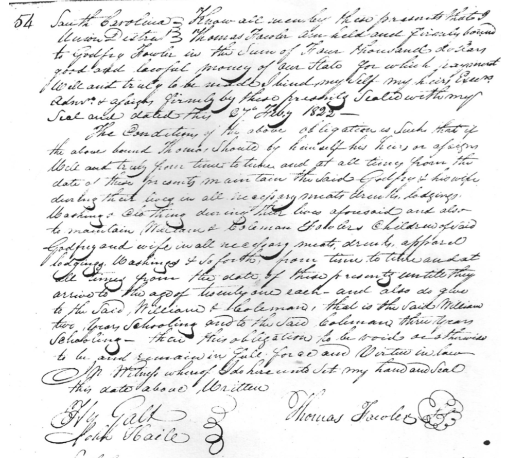 54 South Carolina } Know all men by these presents that I
Union District } Thomas Fowler am held and firmly bound
to Godfrey Fowler in the Sum of Four thousand dollars
good and lawful money of our State for which payment
Well and truly to be made I bind my Self my heirs Exors
Admrs & assigns firmly by these presents Sealed with my
Seal and dated this Feby 1822 —
The Condition of the above obligation is Such, that if
the above bound Thomas Should by himself his heirs or assigns
Well and truly from time to time and at all times from the
date of these presents maintain the Said Godfrey & his wife
during their lives in all necessary meats drinks, lodgings,
Washing & Clothing during their lives aforesaid and also
to maintain William & Coleman Fowlers Children of said
Godfrey and wife in all necessary meats, drinks, apparel
lodgings, Washings & So forth from time to time and at
all times from the date of these presents untill they
arrive to the age of twenty one each — and also do give
to the Said William & Coleman, that is the Said William
two years Schooling and to the Said Coleman three years
Schooling — then this obligation to be void or otherwise
to be and remain in full force and Virtue in law
In Witness whereof I do here unto Set my hand and Seal
this date above Written
Thomas Fowler
Galt
John Haile